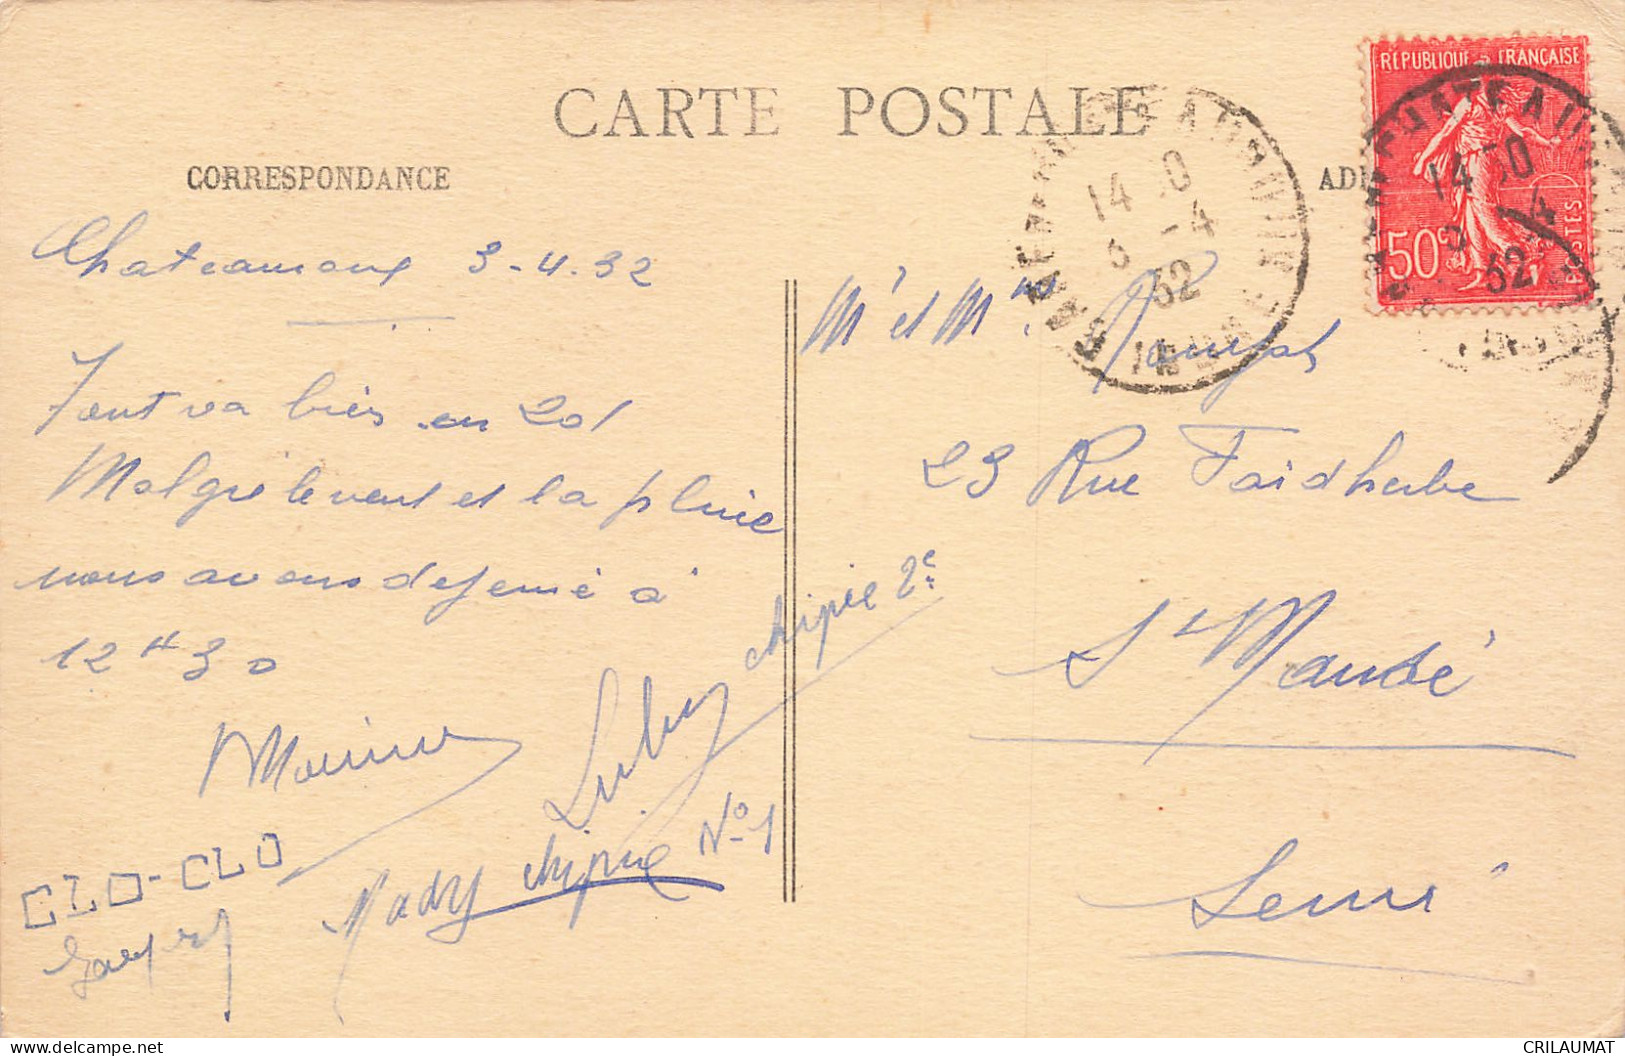 CARTE POSTALE
CORRESPONDANCE
RÉPUBLIQUE FRANÇAISE
50c
POSTES
14
3 -4
32
3-4.32
Tout va bien en
Malgré le vent et la pluie
nous avons dejeuné à
12 H 30
chipie 2e
Mady chipie No 1
CLO-CLO
Mr et Mme
23 Rue Faidherbe
St Mandé
Seine
www.delcampe.net
CRILAUMAT